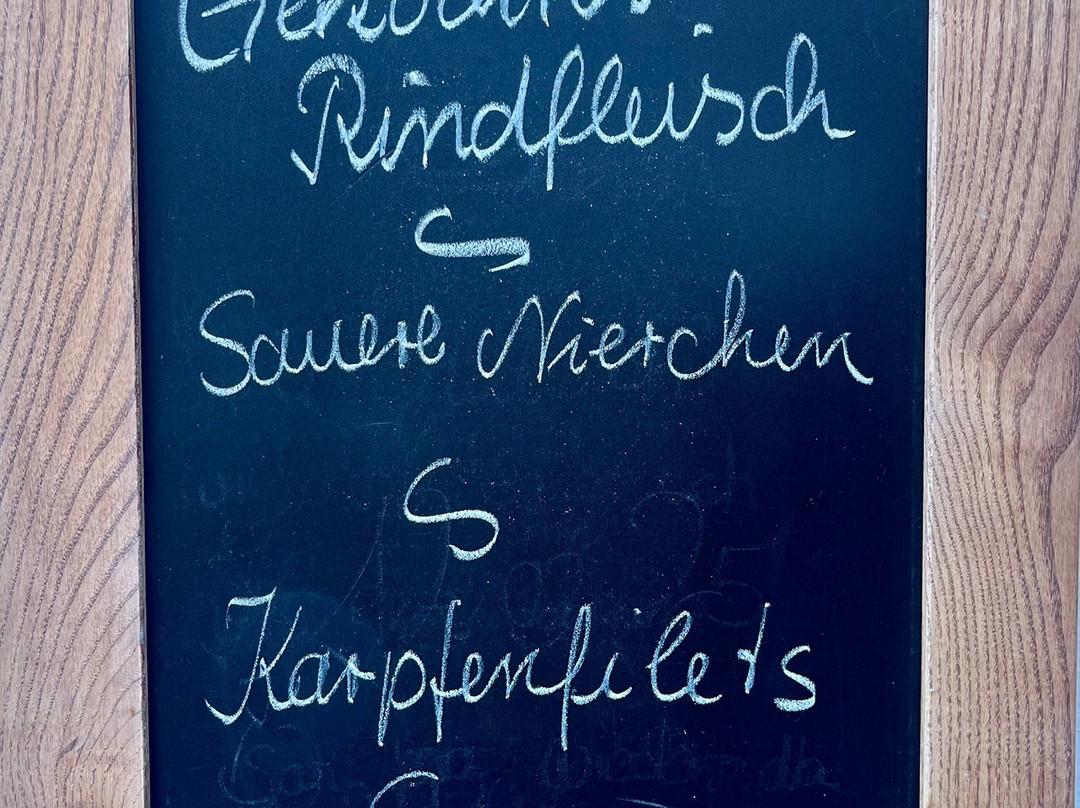 Gekochtes
Rindfleisch
Sauere Nierchen
Karpfenfilets